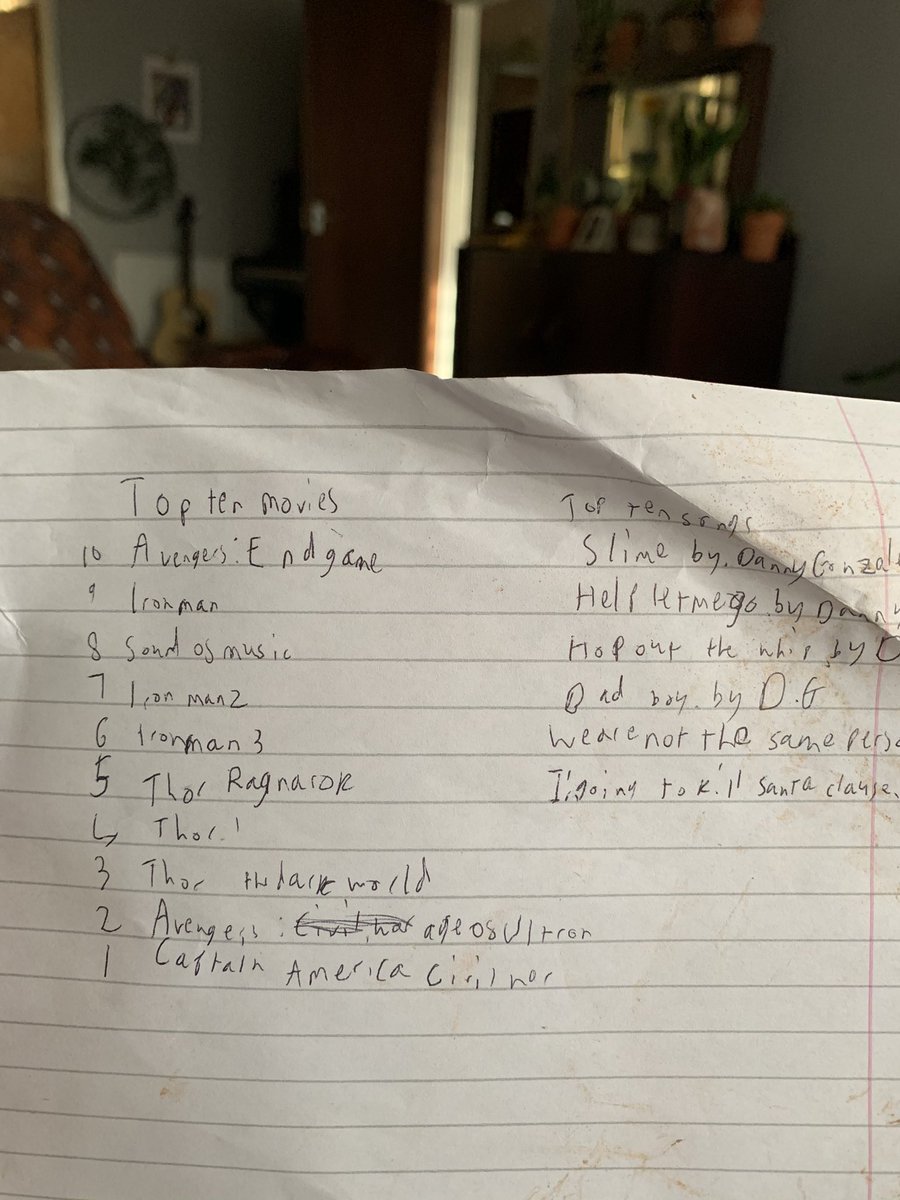 Top ten movies
10 Avengers: Endgame
9 Ironman
8 Sound of music
7 Iron man 2
6 Ironman 3
5 Thor Ragnarok
4 Thor 1
3 Thor the dark world
2 Avengers: age of Ultron
1 Captain America Civil war
Top ten songs
Slime by. Danny Gonzal
Help let me go. by Danny
Hop out the whip by D
Bad boy. by D.G
We are not the same perso
I'going to kill santa clause.